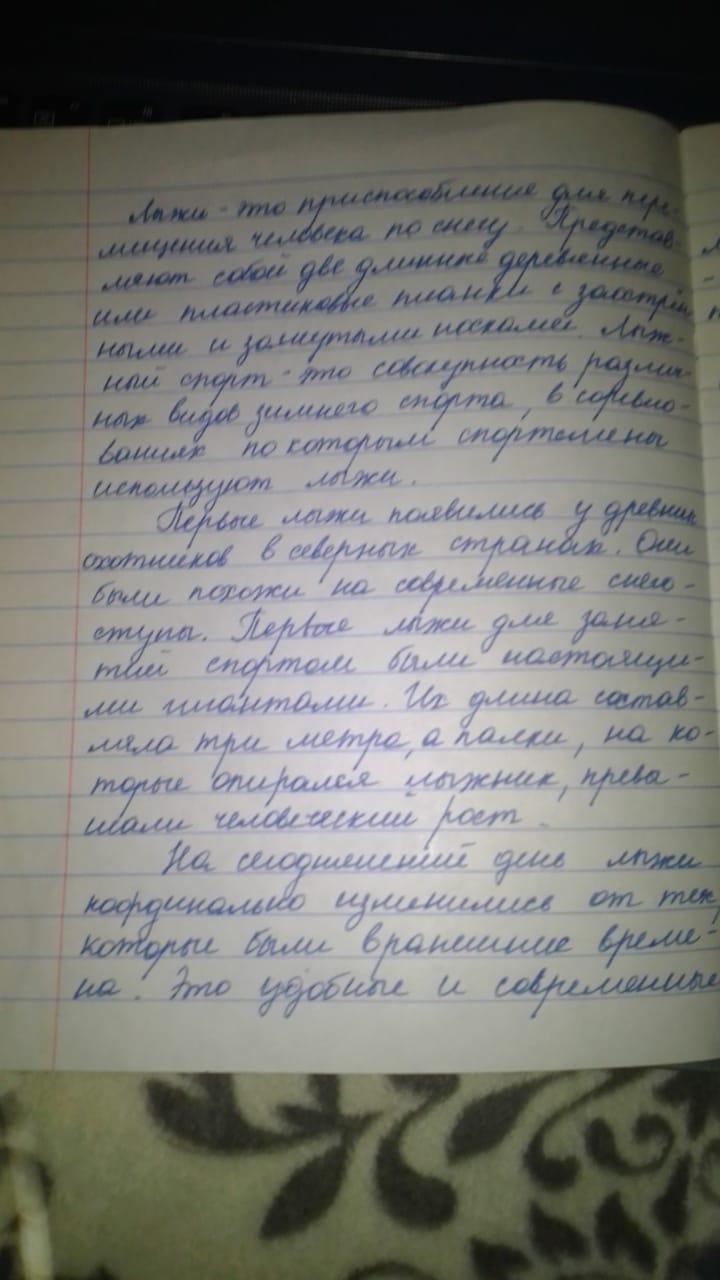 Лыжи - это приспособление для пере-
мещения человека по снегу. Представ-
ляют собой две длинные деревянные
или пластиковые планки с заострён
ными и загнутыми носками. Лыж-
ный спорт - это совокупность различ-
ных видов зимнего спорта, в соревно-
ваниях по которым спортсмены
используют лыжи.
Первые лыжи появились у древних
охотников в северных странах. Они
были похожи на современные снего-
ступы. Первые лыжи для заня-
тий спортом были настоящи-
ми гигантами. Их длина состав-
ляла три метра, а палки, на ко-
торые опирался лыжник, превы-
шали человеческий рост.
На сегодняшний день лыжи
координально изменились от тех,
которые были в ранешние време-
на. Это удобные и современные